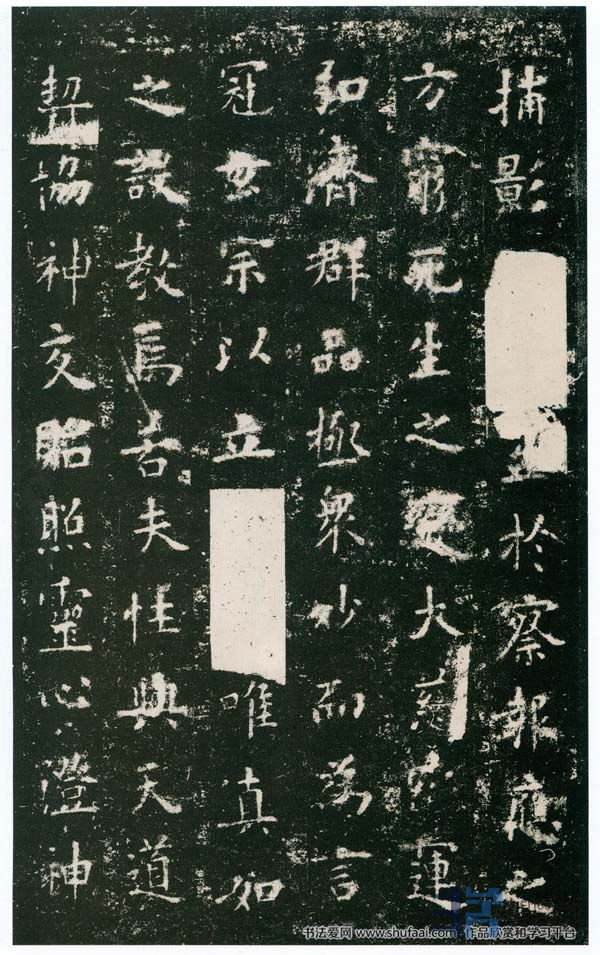 捕影至於察報應之
方窮死生之變大慈宏運
弘濟群品極衆妙而為言
冠玄宗以立唯真如
之設教焉若夫性與天道
契協神交昭照靈心澄神
书法爱网 www.shufaai.com 作品欣赏和学习平台